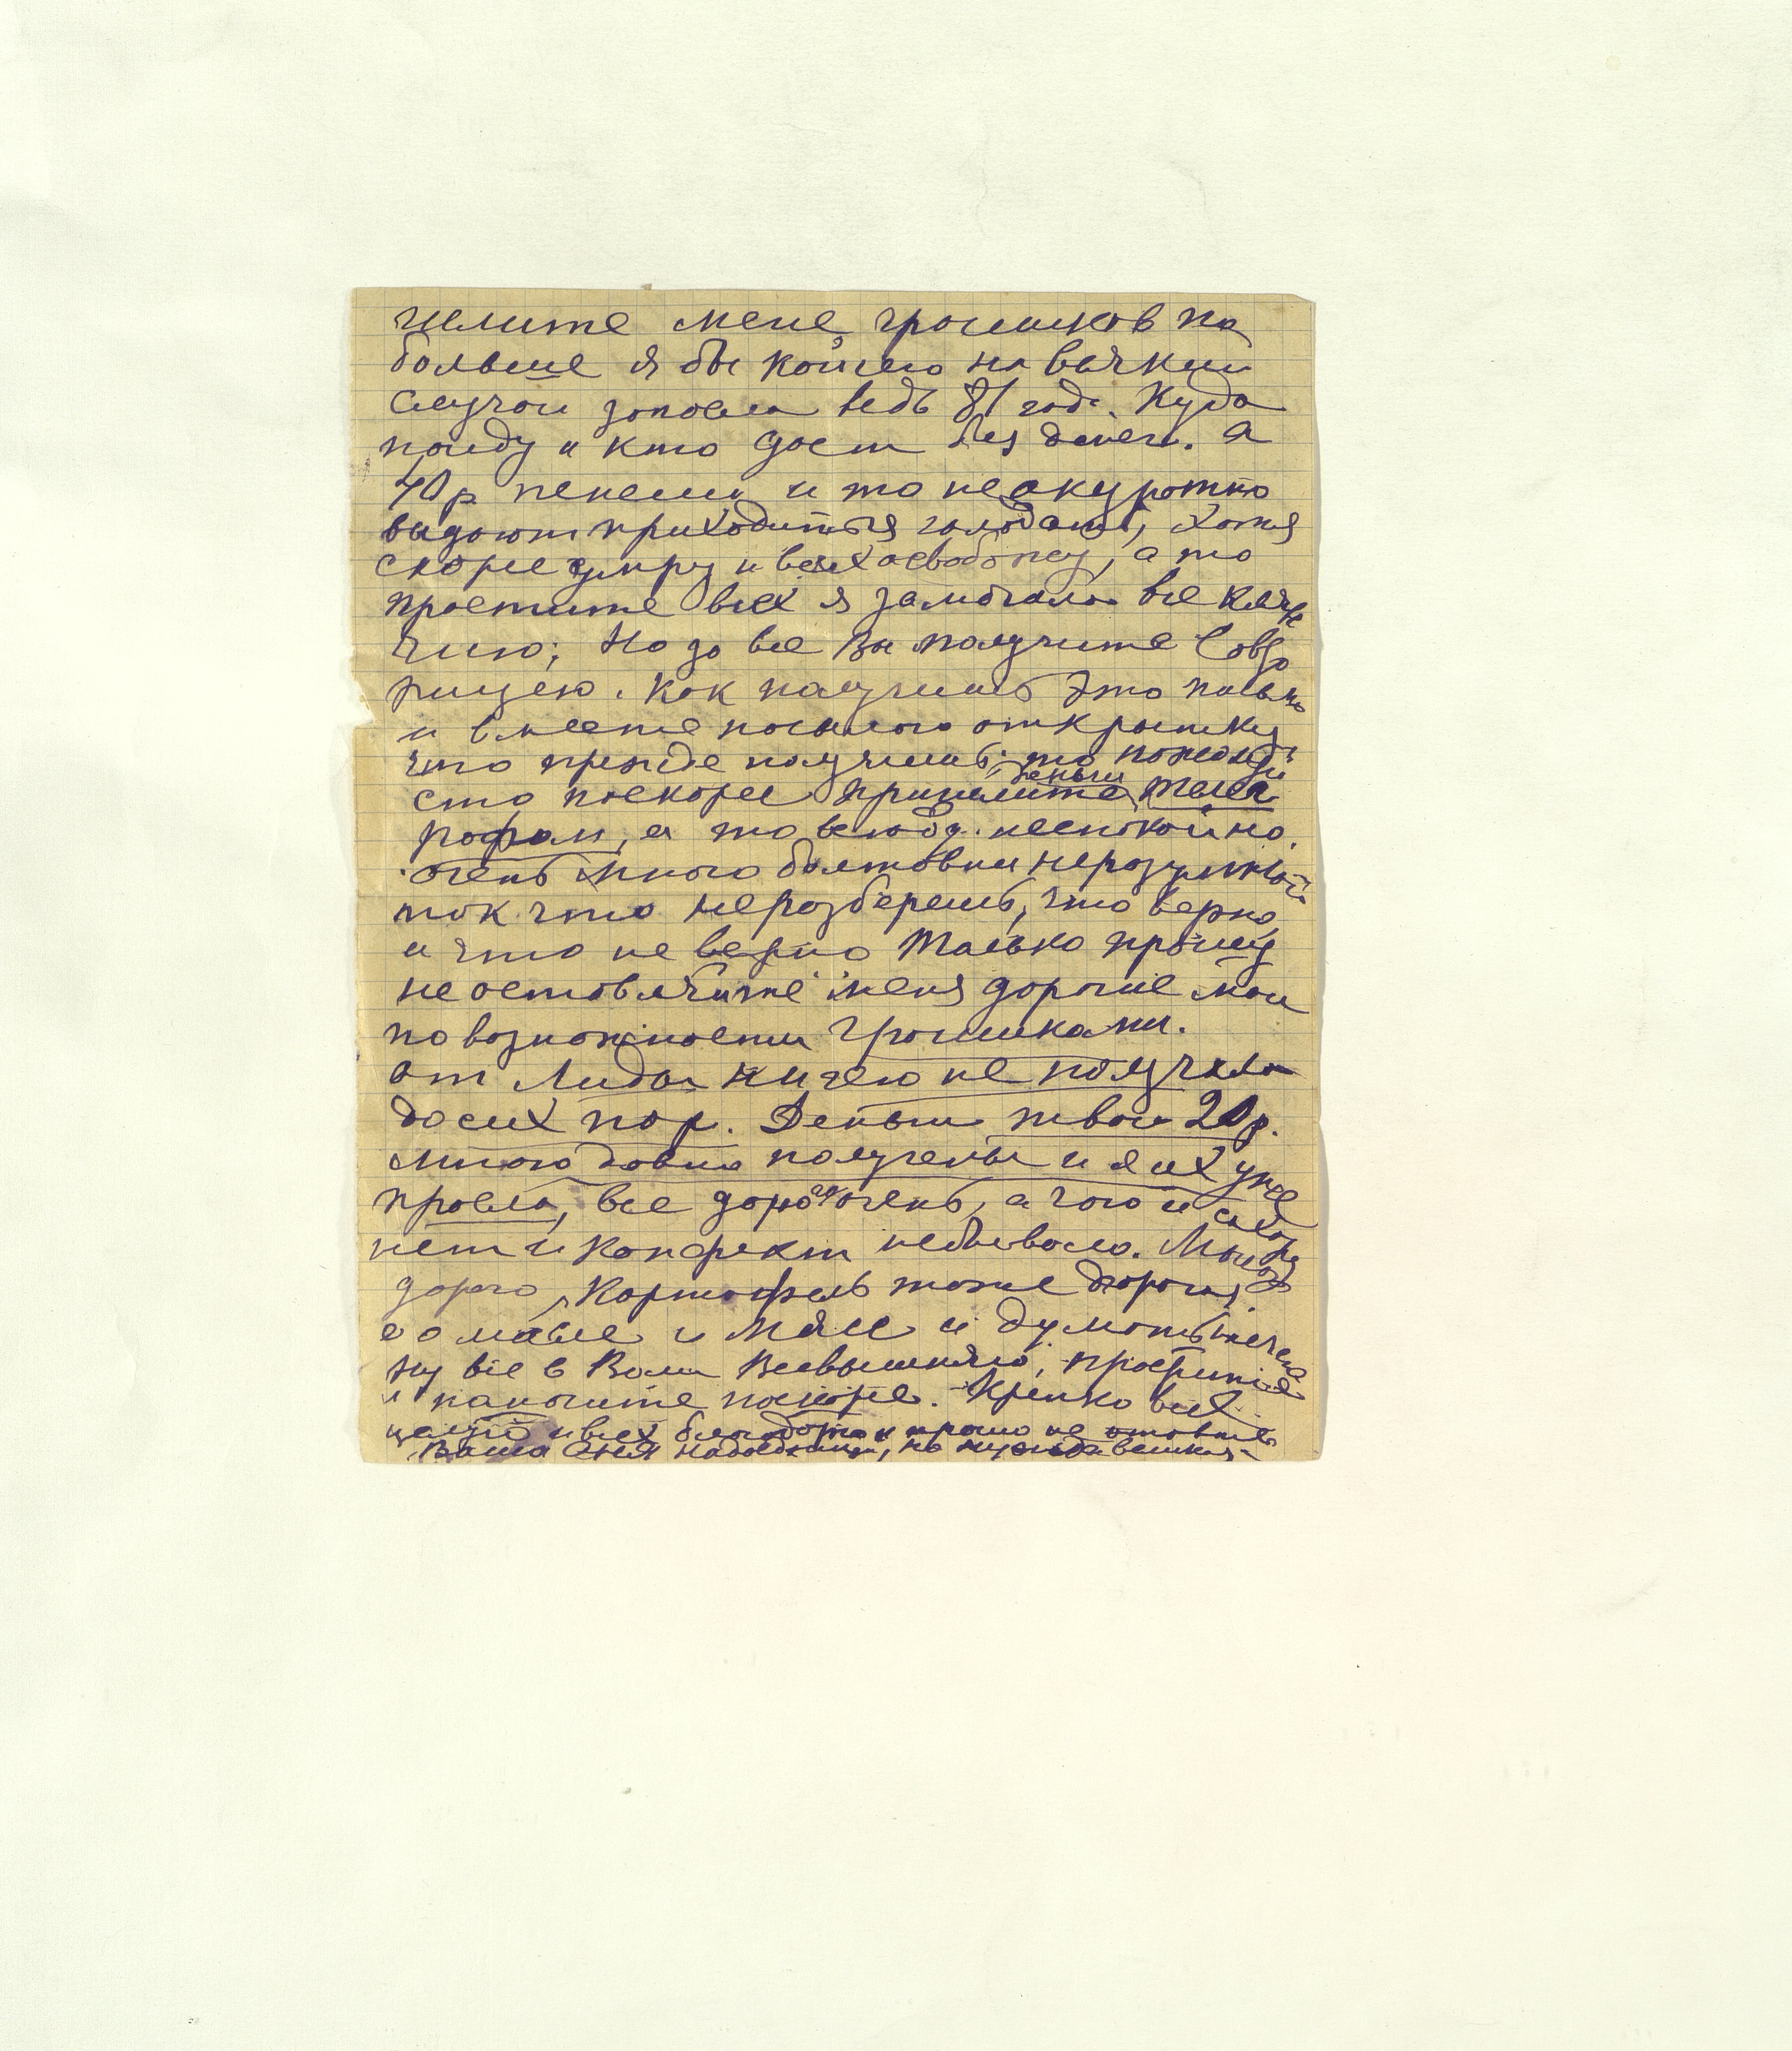 шлите мене грошиков по
больше я бы койчего на всякий
случай запасла ведь 81 год. Куда
пойду и кто даст без денег. а
40 р пенсии и то не окуротно
выдают приходиться голодать, хотя
скорее умру и всех освобожу, а то
простите всех я замотала все клян
чию; Но за все Вы получите
рицею. Как получишь это письмо
и вместе посылаю открытку
что прежде получишь, то пожалуй
ста поскорее пришлите деньги телег
рофом, а то всюду неспокойно.
очень много болтовни неразумной
так что неразберешь, что верно
и что не верно Только прошу
не оставляйте меня дорогие мои
по возможности грошиками.
от Лиды ничего не получила
досих пор. Деньги твои 20 р.
мною давно получены и я их уже
проела, все дорого очень, а чаю и сахару
нет и конфект небывало. Молоко
дорого, Картофель тоже дорогая,
а о масле и мясе и думать нечего
Ну все в Воли Всевышняго, простите
и пишите поскорее. Крепко всех
целую и всех благодарю и прошу не
Ваша надоедница, но нужда великая